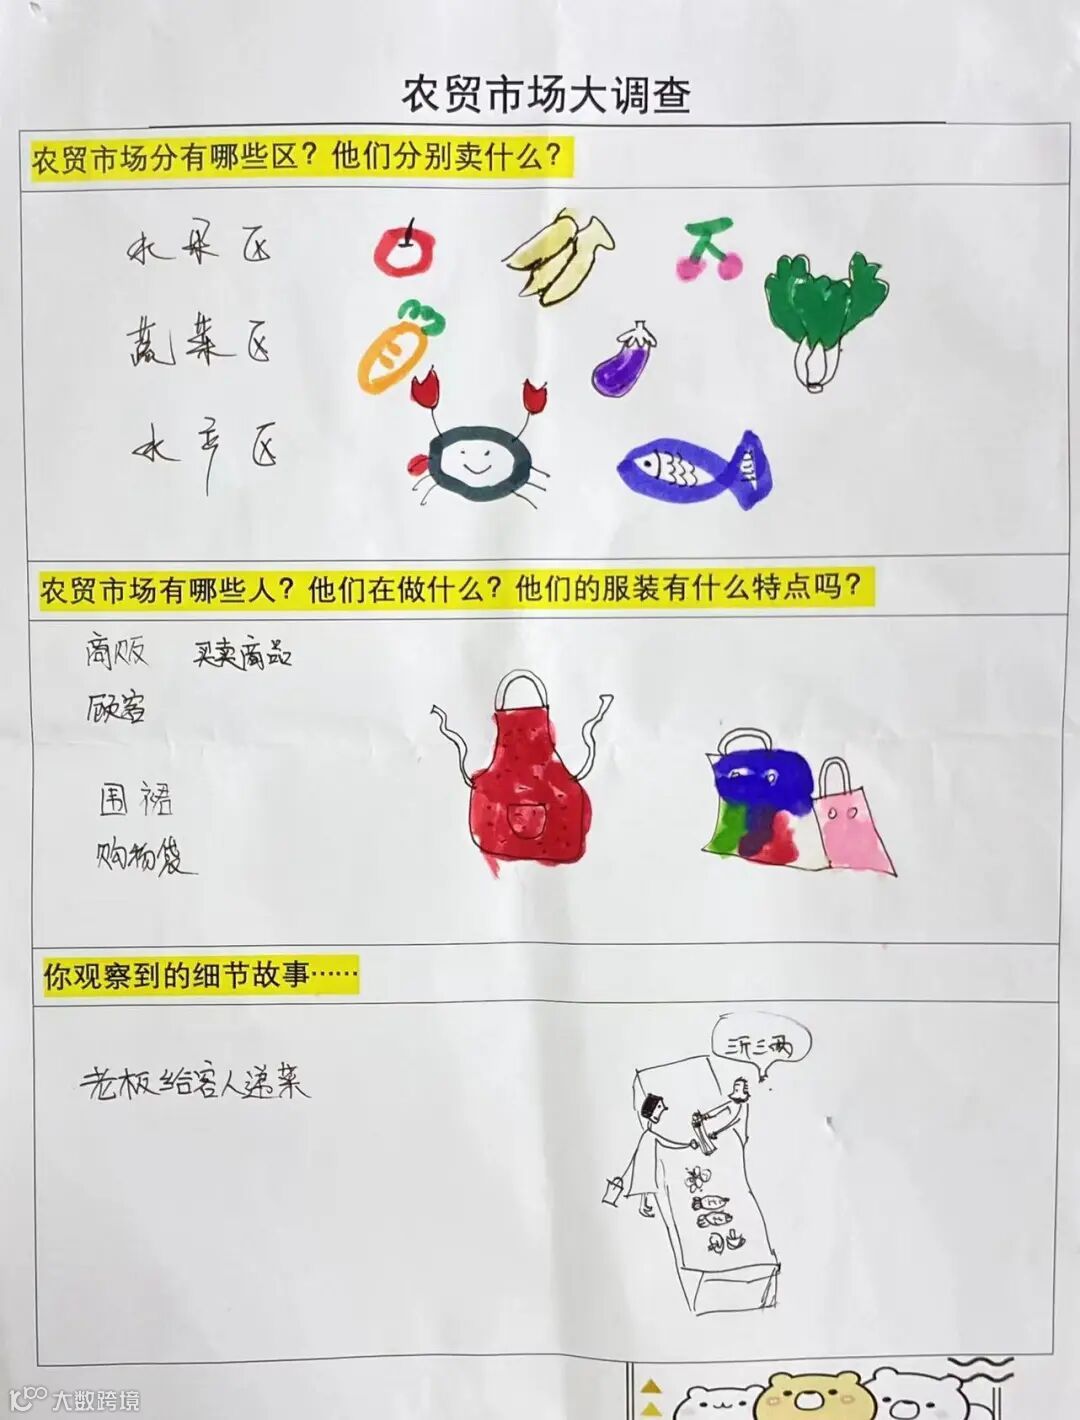 农贸市场大调查
农贸市场分有哪些区？他们分别卖什么？
水果区
蔬菜区
水产区
农贸市场有哪些人？他们在做什么？他们的服装有什么特点吗？
商贩 买卖商品
顾客
围裙
购物袋
你观察到的细节故事……
三斤三两
老板给客人递菜
大数跨境